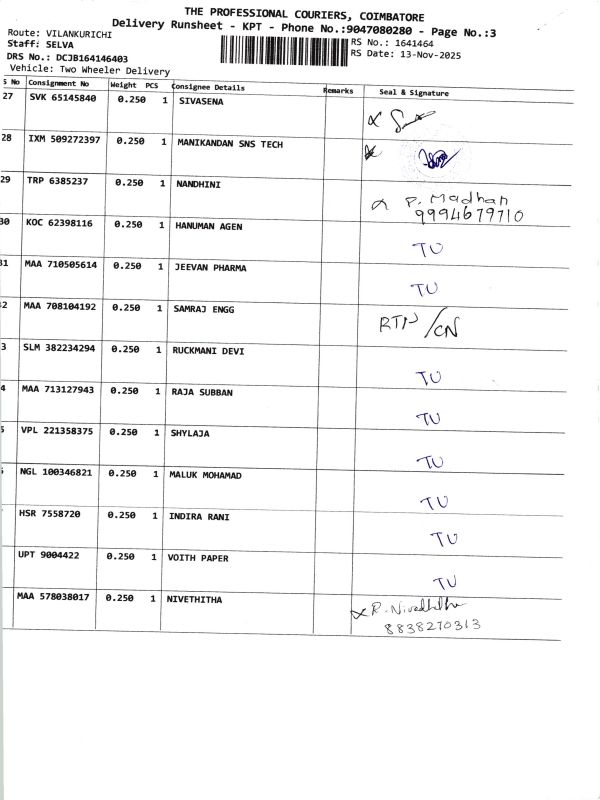 THE PROFESSIONAL COURIERS, COIMBATORE
Delivery Runsheet - KPT - Phone No.:9047080280 - Page No.:3
Route: VILANKURICHI
Staff: SELVA
RS No.: 1641464
DRS No.: DCJB164146403
RS Date: 13-Nov-2025
Vehicle: Two Wheeler Delivery
S No Consignment No Weight PCS Consignee Details Remarks Seal & Signature
27 SVK 65145840 0.250 1 SIVASENA
28 IXM 509272397 0.250 1 MANIKANDAN SNS TECH
29 TRP 6385237 0.250 1 NANDHINI P. Madhan
9994679710
30 KOC 62398116 0.250 1 HANUMAN AGEN TU
31 MAA 710505614 0.250 1 JEEVAN PHARMA TU
2 MAA 708104192 0.250 1 SAMRAJ ENGG RTN/CN
3 SLM 382234294 0.250 1 RUCKMANI DEVI TU
4 MAA 713127943 0.250 1 RAJA SUBBAN TU
5 VPL 221358375 0.250 1 SHYLAJA TU
NGL 100346821 0.250 1 MALUK MOHAMAD TU
HSR 7558720 0.250 1 INDIRA RANI TU
UPT 9004422 0.250 1 VOITH PAPER TU
MAA 578038017 0.250 1 NIVETHITHA R. Nivedhitha
8838270313